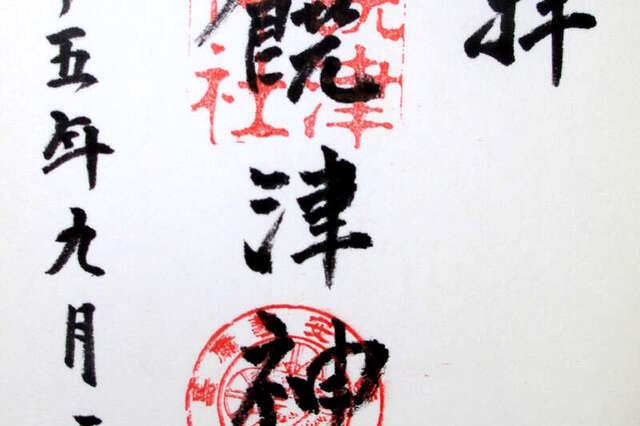 拝
饒津神
饒津
神社
五年九月